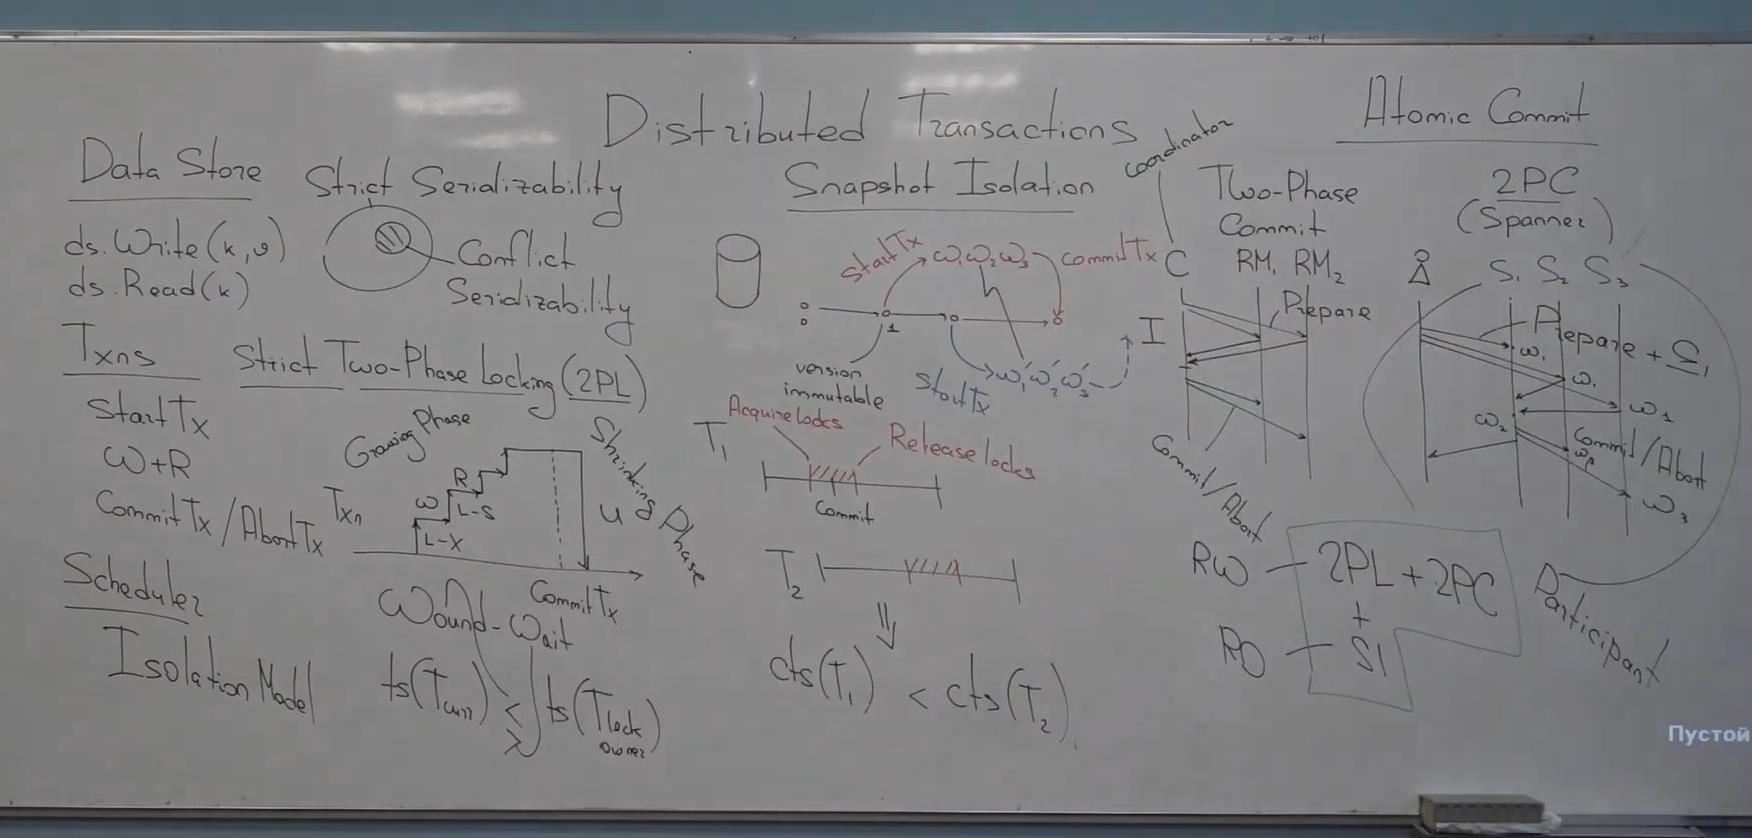 Distributed Transactions
Atomic Commit
Data Store
ds.Write(k,v)
ds.Read(k)
Txns
StartTx
W+R
CommitTx/AbortTx
Scheduler
Isolation Model
Strict Serializability
Conflict
Serializability
Strict Two-Phase Locking (2PL)
Growing Phase
Shrinking Phase
Txn
W
R
L-X
L-S
U
CommitTx
Wound-Wait
ts(Tcurr) < ts(Tlock
>
owner)
Snapshot Isolation
StartTx
W1W2W3
CommitTx
1
version
immutable
StartTx
W1'W2'W3'
Acquire locks
Release locks
T1
Commit
T2
cts(T1) < cts(T2)
Coordinator
Two-Phase
Commit
C RM1 RM2
I
Prepare
Commit/Abort
2PC
(Spanner)
S1 S2 S3
Prepare +
W1
W1
W1
W2
Commit/Abort
W2
W3
RW – 2PL+2PC
+
RO – SI
Participant
Пустой